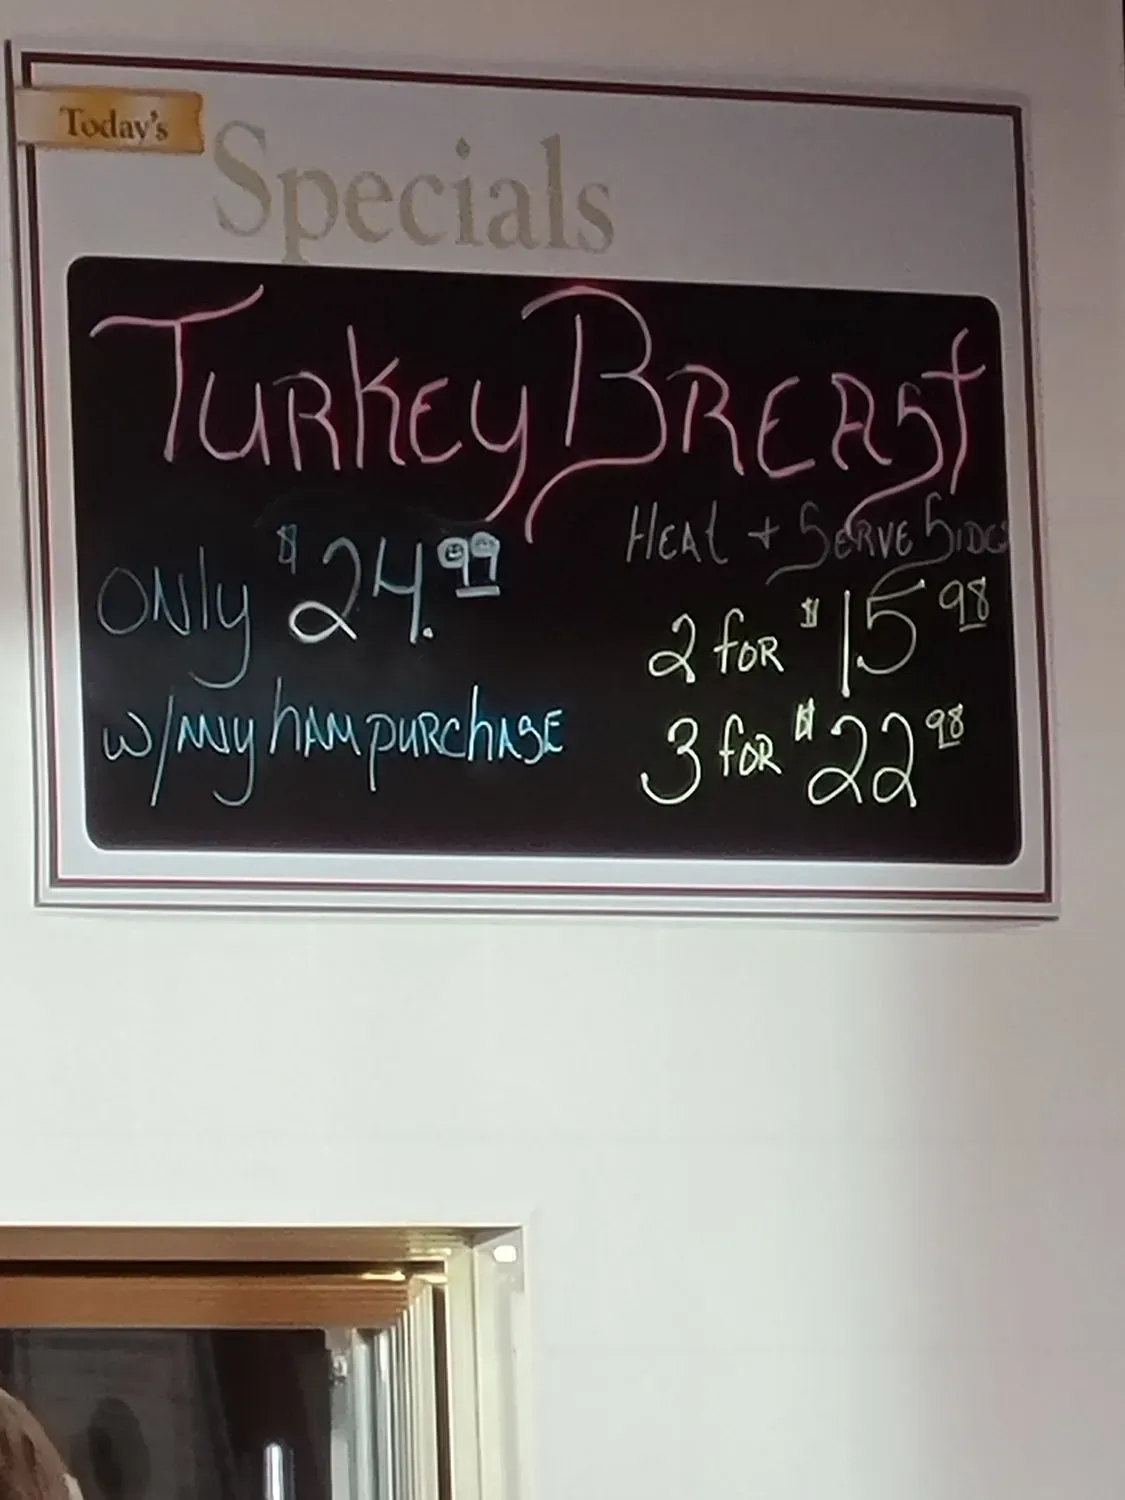 Today's
Specials
TURKEY BREAST
ONLY $24.99
w/ANY HAM PURCHASE
HEAT + SERVE SIDES
2 FOR $15 98
3 FOR $22 98